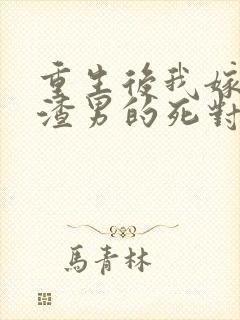 重生後我嫁
渣男的死對
馬青林